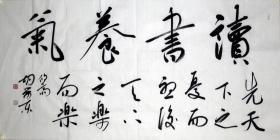 讀書養氣
先天
下之
憂而
憂後
天下
之樂
而樂